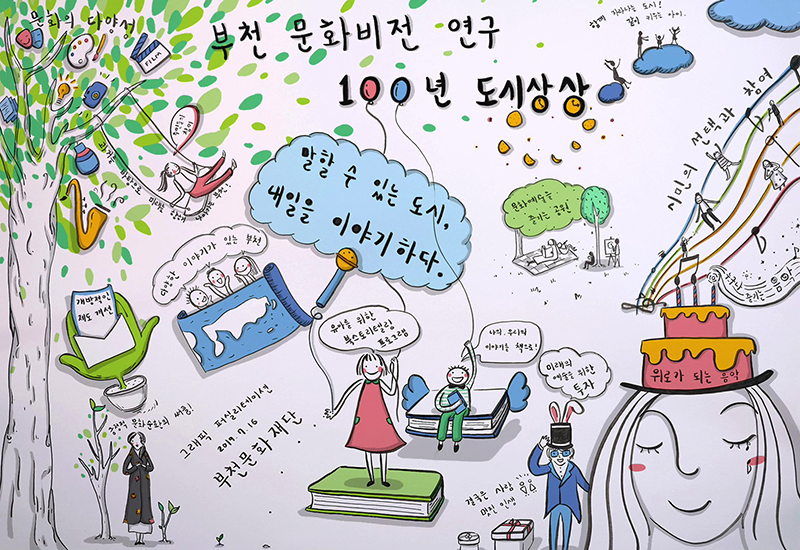 문화의 다양성
FILM
부천 문화비전 연구
100년 도시상상
함께 자라나는 도시!
같이 키우는 아이.
말할 수 있는 도시,
내일을 이야기하다.
문화예술을
즐기는 공원
시민의 선택과 참여
다양한 이야기가 있는 부천
개방적인
제도 개선
유아를 위한
북스토리텔링
프로그램
나의, 우리의
이야기를 책으로!
미래의
예술을 위한
투자
위로가 되는 음악
그래픽 퍼실리테이션
2019. 7. 16
부천문화재단
결국은 사람